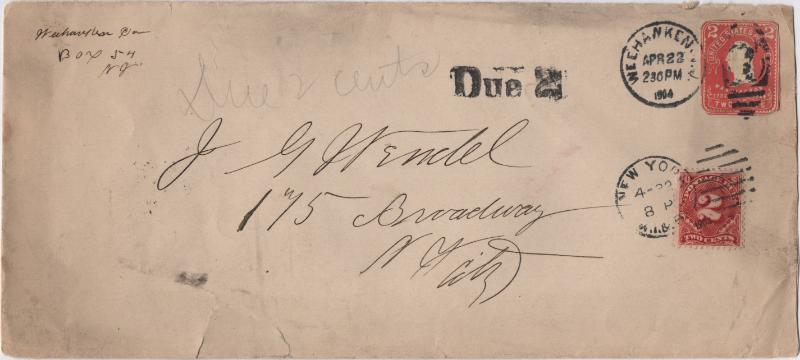 Weehawken
BOX 54
N J
Due 2 cents
Due 2
WEEHAWKEN
APR 22
230 PM
1904
2
2
UNITED STATES
TWO
J G Wendel
175 Broadway
N Y City
NEW YORK
4-22
8 P
POSTAGE
2
TWO CENTS